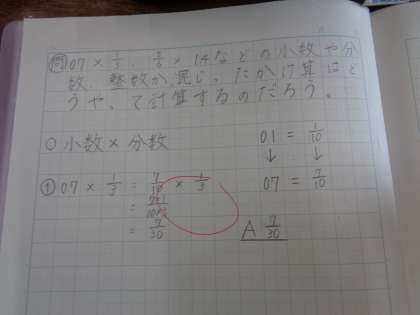 問 0.7 × 1/3、5/6 × 1.4などの小数や分
数、整数が混じったかけ算はど
うやって計算するのだろう。
○ 小数 × 分数
0.1 = 1/10
↓ ↓
0.7 = 7/10
① 0.7 × 1/3 = 7/10 × 1/3
= 7×1/10×3
= 7/30
A 7/30